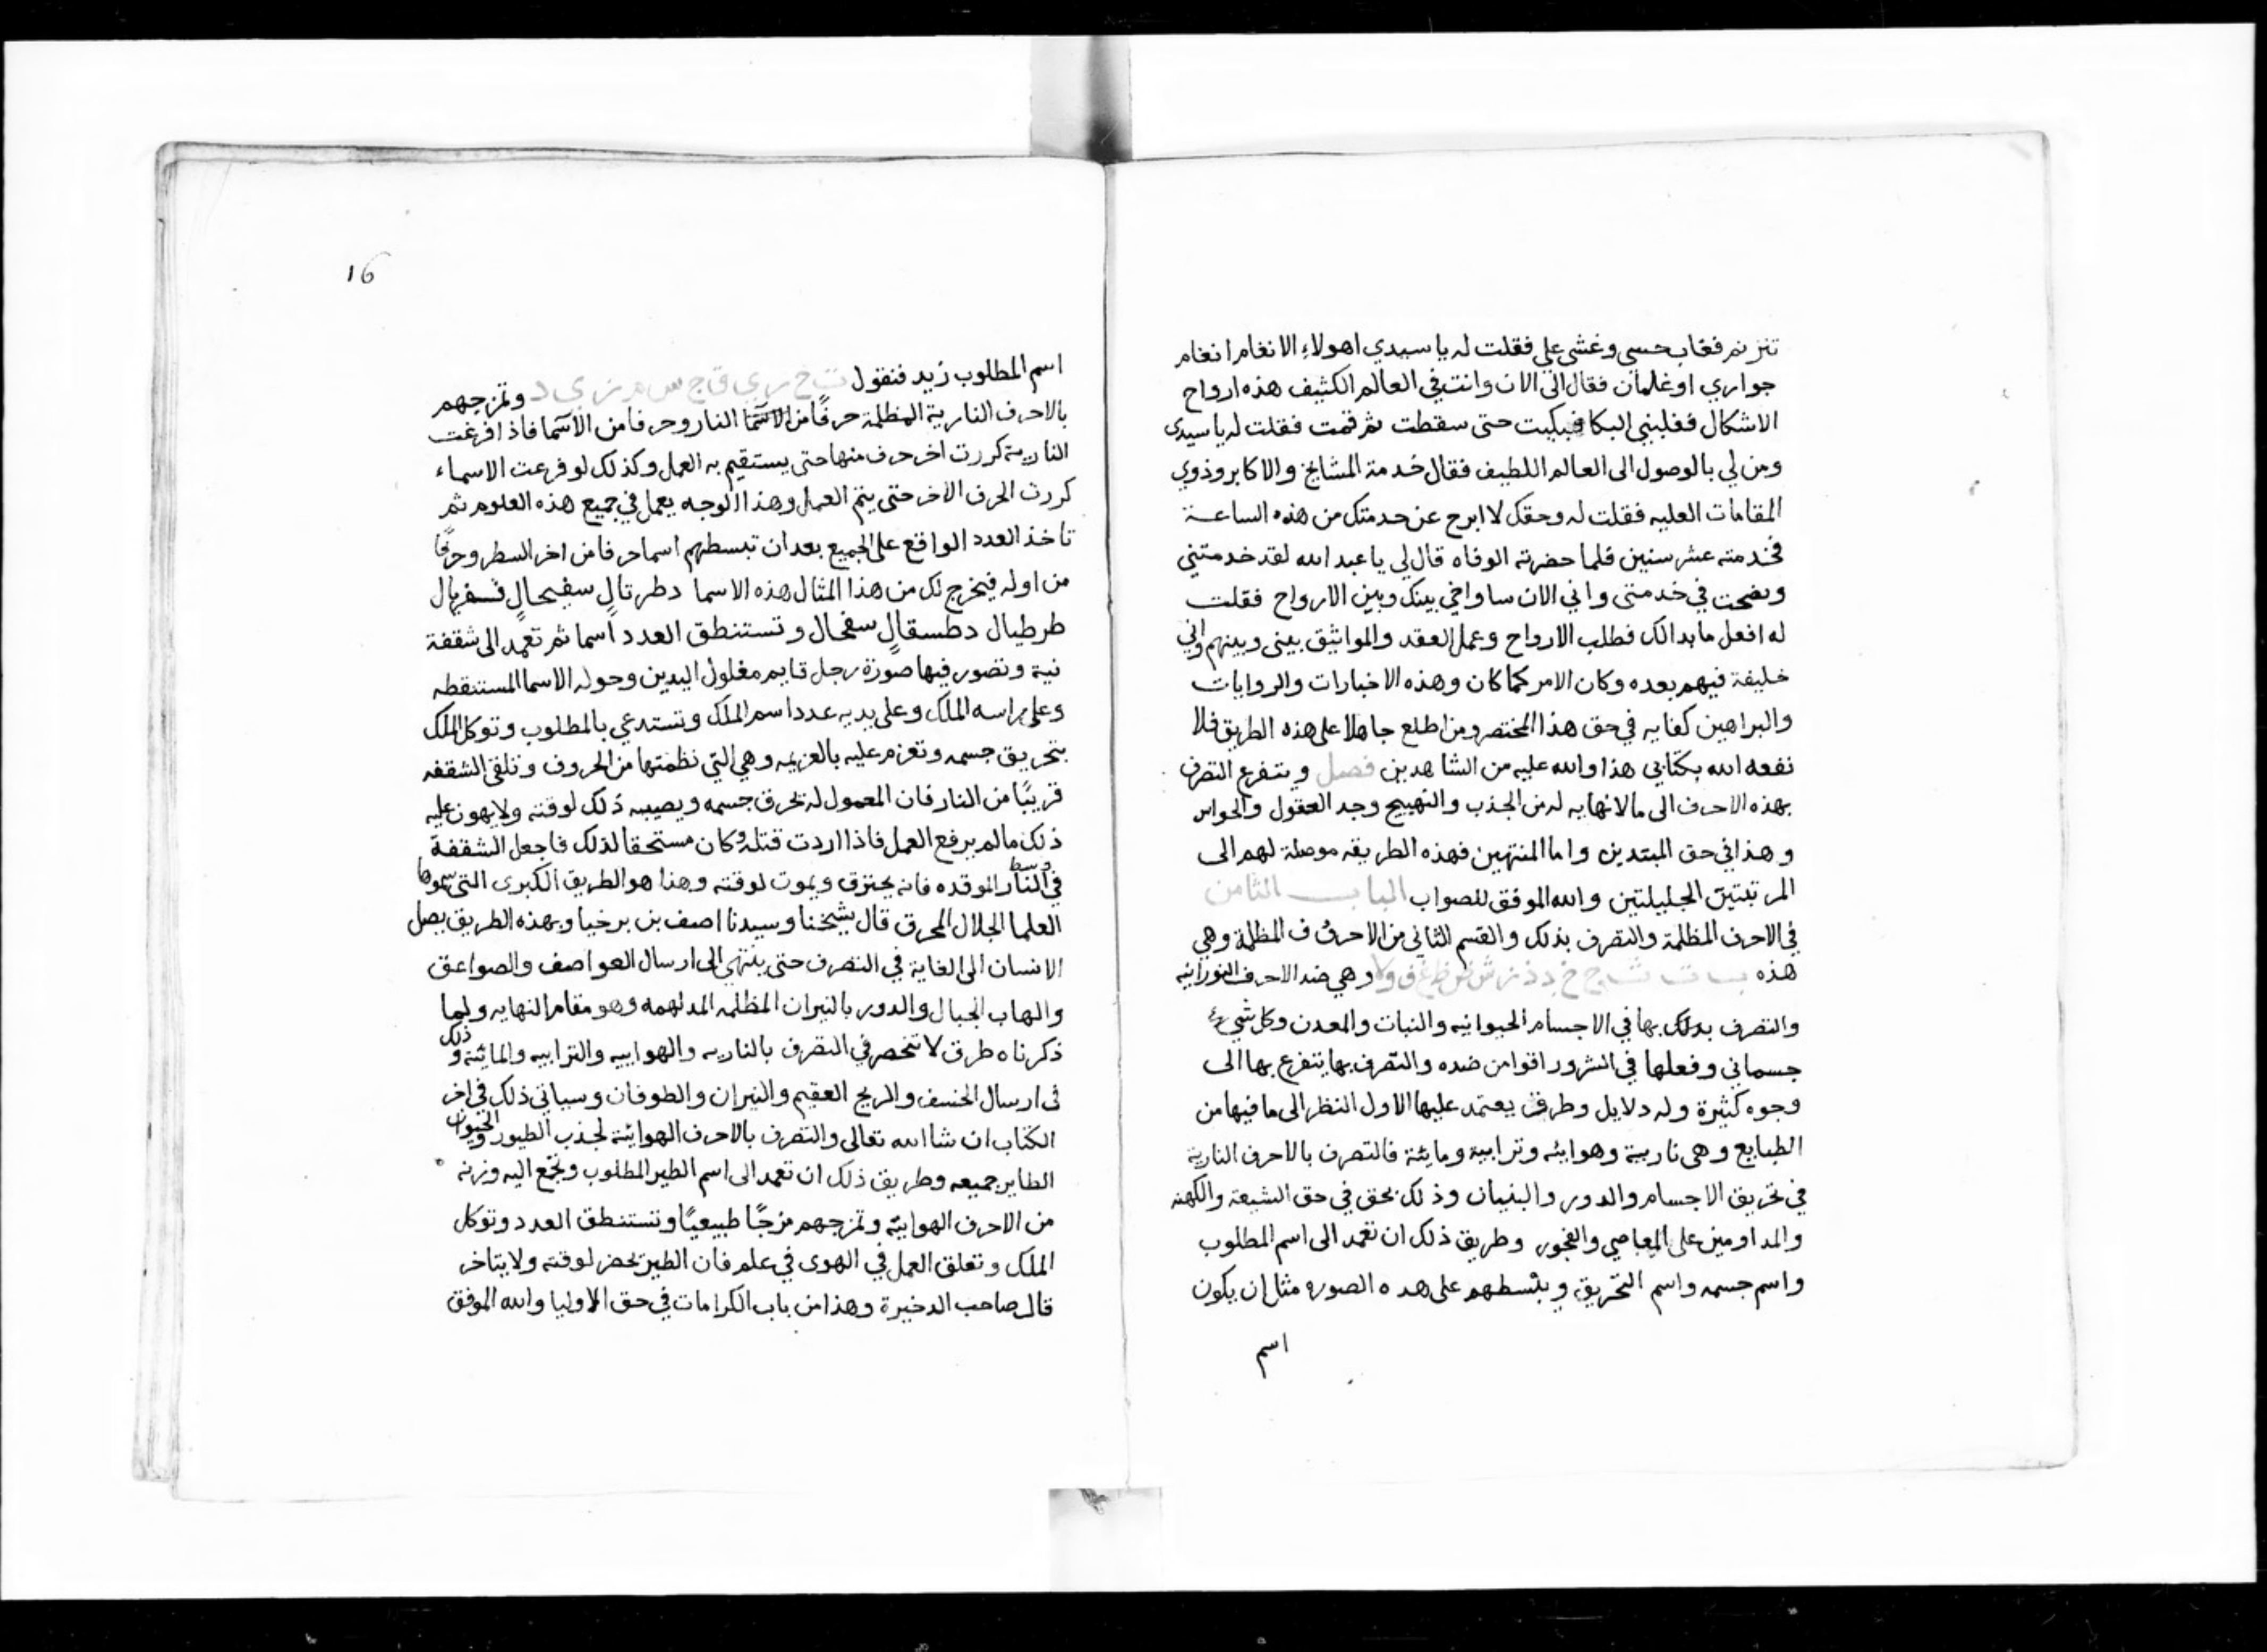 تترنم فغاب حسي وغشى علي فقلت له يا سيدي اهولاء الانغام انغام
جواري او غلمان فقال الى الان وانت في العالم الكثيف هذه ارواح
الاشكال فغلبني البكا فبكيت حتى سقطت ثم قمت فقلت له يا سيدي
ومن لي بالوصول الى العالم اللطيف فقال خدمة المشايخ والاكابر وذوي
المقامات العليه فقلت له وحقك لا ابرح عن خدمتك من هذه الساعة
فخدمته عشر سنين فلما حضرته الوفاه قال لي يا عبد الله لقد خدمتني
ونصحت في خدمتى واني الان ساواخي بينك وبين الارواح فقلت
له افعل ما بدالك فطلب الارواح وعمل العقد والمواثيق بيني وبينهم واني
خليفة فيهم بعده وكان الامر كما كان وهذه الاخبارات والروايات
والبراهين كفايه في حق هذا المختصر ومن اطلع جاهلا على هذه الطريق فلا
نفعه الله بكتابي هذا والله عليه من الشاهدين فصل ويتفرع التصرف
بهذه الاحرف الى مالانهايه له من الجذب والتهييج وجد العقول والحواس
وهذا في حق المبتدين واما المنتهين فهذه الطريقه موصلة لهم الى
المرتبتين الجليلتين والله الموفق للصواب الباب الثامن
في الاحرف المظلمة والتصرف بذلك والقسم الثاني من الاحرف المظلمة وهي
هذه ب ت ث ج خ د ذ ز ش ض ظ غ ف و لا وهي ضد الاحرف النورانيه
والتصرف بدلك بها في الاجسام الحيوانيه والنبات والمعدن وكل شيء
جسماني وفعلها في الشرور اقوا من ضده والتصرف بها يتفرع بها الى
وجوه كثيرة وله دلايل وطرق يعتمد عليها الاول النظر الى ما فيها من
الطبايع وهي نارية وهوائه وترابية ومائة فالتصرف بالاحرف النارية
في تحريق الاجسام والدور والبنيان وذلك بحق في حق الشيعة والكهنه
والمداومين على المعاصي والفجور وطريق ذلك ان تعمد الى اسم المطلوب
واسم جسمه واسم التحريق وبتسطهم على هده الصوره مثال ان يكون
اسم
16
اسم المطلوب زيد فنقول ت خ ر ي ق ا ج س م ز ي د وتمزجهم
بالاحرف النارية المظلمة حرفًا من الاسما النار وحرفا من الاسما فاذا فرغت
النارية كررت اخر حرف منها حتى يستقيم به العمل وكذلك لو فرعت الاسماء
كررت الحرف الاخر حتى يتم العمل وهذا الوجه يعمل في جميع هذه العلوم ثم
تاخذ العدد الواقع على الجميع بعد ان تبسطهم اسما حرفا من اخر السطر وحرفًا
من اوله فيخرج لك من هذا المثال هذه الاسما دطرتال سفيحال فسفريال
طرطيال دطسقال سفحال وتستنطق العدد اسما ثم تعمد الى شقفة
نية وتصور فيها صورة رجل قايم مغلول اليدين وحوله الاسما المستنقطه
وعلى راسه الملك وعلى يديه عدد اسم الملك وتستدعي بالمطلوب وتوكل الملك
بتحريق جسمه وتعزم عليه بالعزيمه وهي التي نظمتها من الحروف وتلقى الشقفه
قريبًا من النار فان المعمول له تحرق جسمه ويصيبه ذلك لوقته ولا يهون عليه
ذلك ما لم يرفع العمل فاذا اردت قتله وكان مستحقا لذلك فاجعل الشقفة
في وسط النار الموقده فانه يحترق ويموت لوقته وهذا هو الطريق الكبرى التي سموها
العلما الجلال المحرق قال شيخنا وسيدنا اصف بن برخيا وبهذه الطريق يصل
الانسان الى الغاية في التصرف حتى ينتهي الى ارسال العواصف والصواعق
والهاب الجبال والدور بالنيران المظلمه المدلهمه وهو مقام النهايه ولما
ذكرناه طرق لا تنحصر في التصرف بالناريه والهواييه والترابيه والمائية وذلك
في ارسال الخسف والريح العقيم والنيران والطوفان وسياتي ذلك في اخر
الكتاب ان شا الله تعالى والتصرف بالاحرف الهوائية لجذب الطيور والحيوان
الطاير جميعه وطريق ذلك ان تعمد الى اسم الطير المطلوب وتجمع اليه وزنه
من الاحرف الهوايية وتمزجهم مزجًا طبيعيًا وتستنطق العدد وتوكل
الملك وتعلق العمل في الهوى في علم فان الطير يحضر لوقته ولا يتاخر
قال صاحب الدخيرة وهذا من باب الكرامات في حق الاوليا والله الموفق